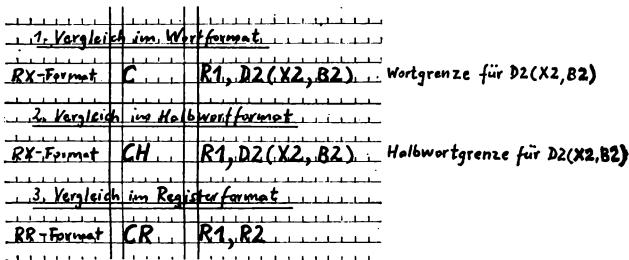 1. Vergleich im Wortformat
RX-Format C R1, D2(X2, B2) Wortgrenze für D2(X2, B2)
2. Vergleich im Halbwortformat
RX-Format CH R1, D2(X2, B2) Halbwortgrenze für D2(X2, B2)
3. Vergleich im Registerformat
RR-Format CR R1, R2